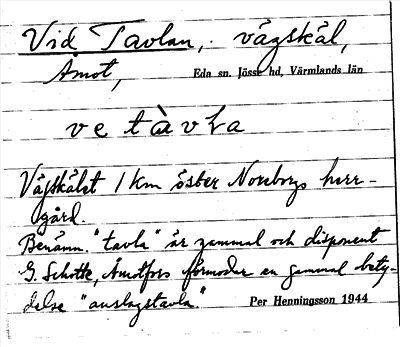 Vid Tavlan, vägskäl,
Åmot, Eda sn. Jösse hd, Värmlands län
ve tàvla
Vägskälet 1 km öster Noreborgs herr-
gård.
Benämn. "tavla" är gammal och disponent
G. Schotte, Åmotfors förmodar en gammal bety-
delse "anslagstavla".
Per Henningsson 1944